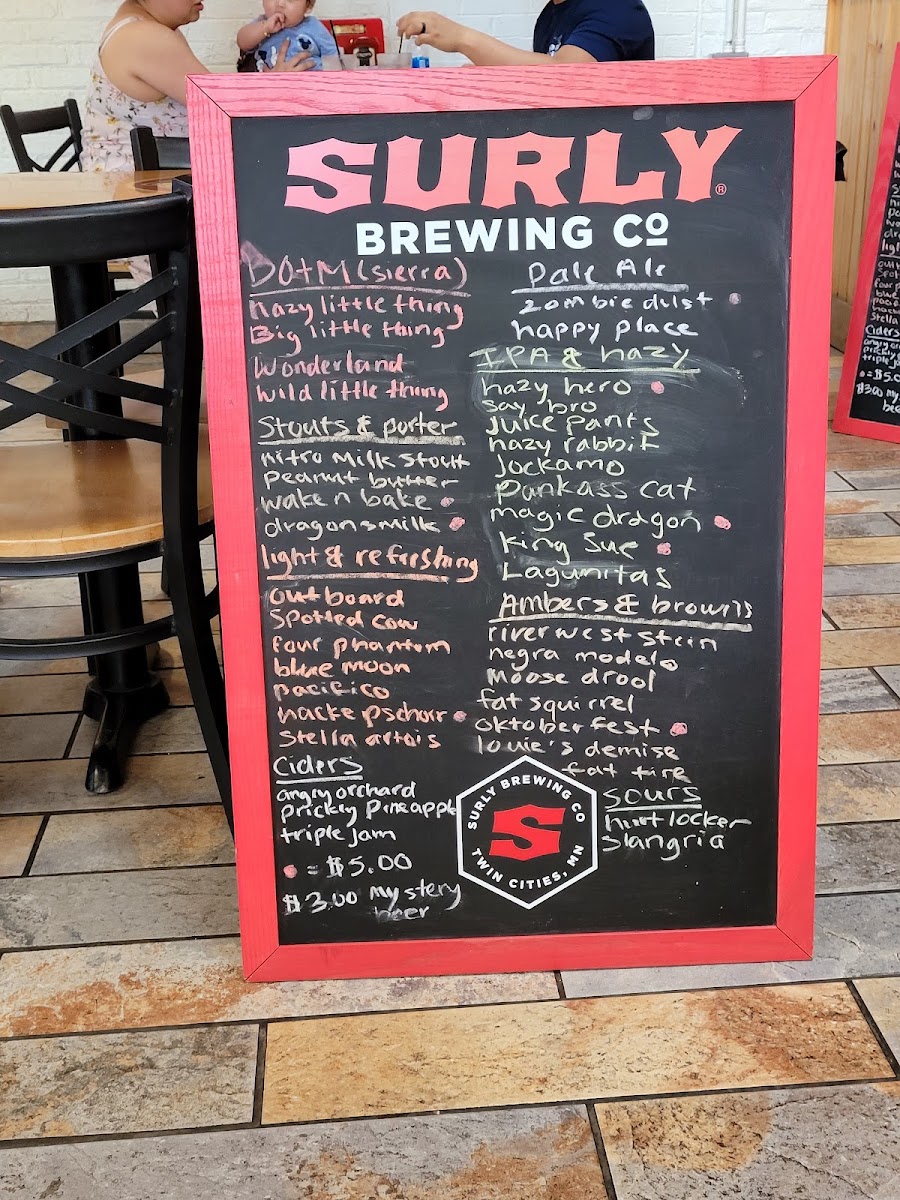 SURLY®
BREWING Co
BOtM (sierra)
hazy little thing
Big little thing
Wonderland
Wild little thing
Stouts & porter
nitro milk stout
Peanut butter
wake n bake
dragonsmilk
light & refurshing
outboard
Spotted cow
four phantom
blue moon
pacifico
hacke pschorr
Stella artois
Ciders
angry orchard
Prickly Pineapple
triple jam
= $5.00
$3.00 mystery
beer
Pale Ale
zombie dust
happy place
IPA & hazy
hazy hero
say bro
Juice pants
hazy rabbit
Jockamo
Punkass cat
magic dragon
King Sue
Lagunitas
Ambers & browns
riverwest stein
negra modelo
Moose drool
fat squirrel
Oktoberfest
louie's demise
fat tire
Sours
hurt locker
Slangria
SURLY BREWING CO
S
TWIN CITIES, MN